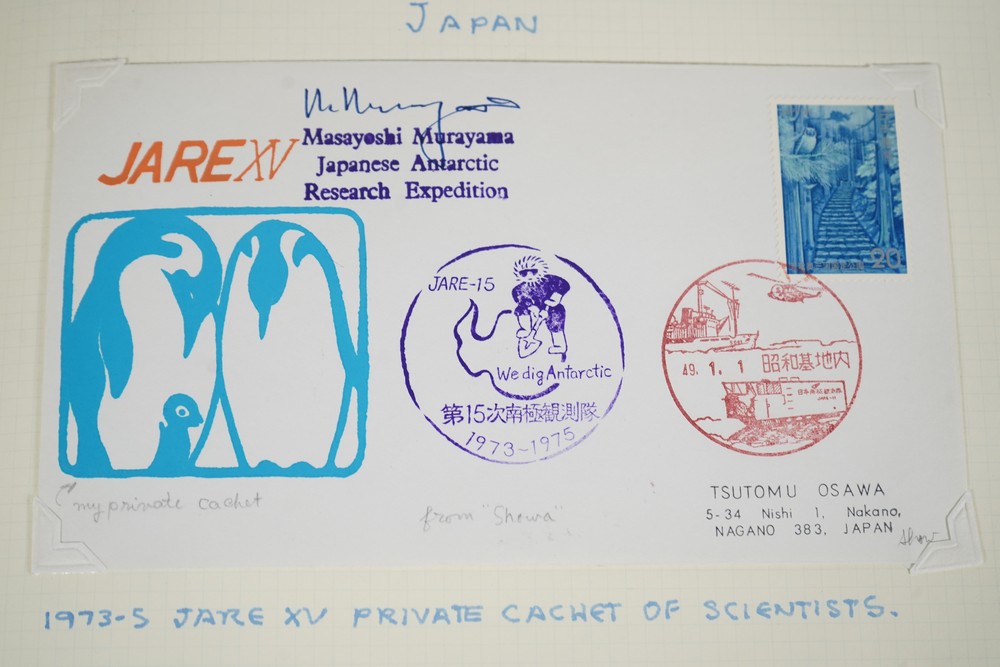 JAPAN
Masayoshi Murayama
Japanese Antarctic
Research Expedition
JARE XV
20
JARE-15
We dig Antarctic
第15次南極観測隊
1973~1975
49. 1. 1 昭和基地内
my private cachet
from "Showa"
TSUTOMU OSAWA
5-34 Nishi 1, Nakano,
NAGANO 383, JAPAN
1973-5 JARE XV PRIVATE CACHET OF SCIENTISTS.